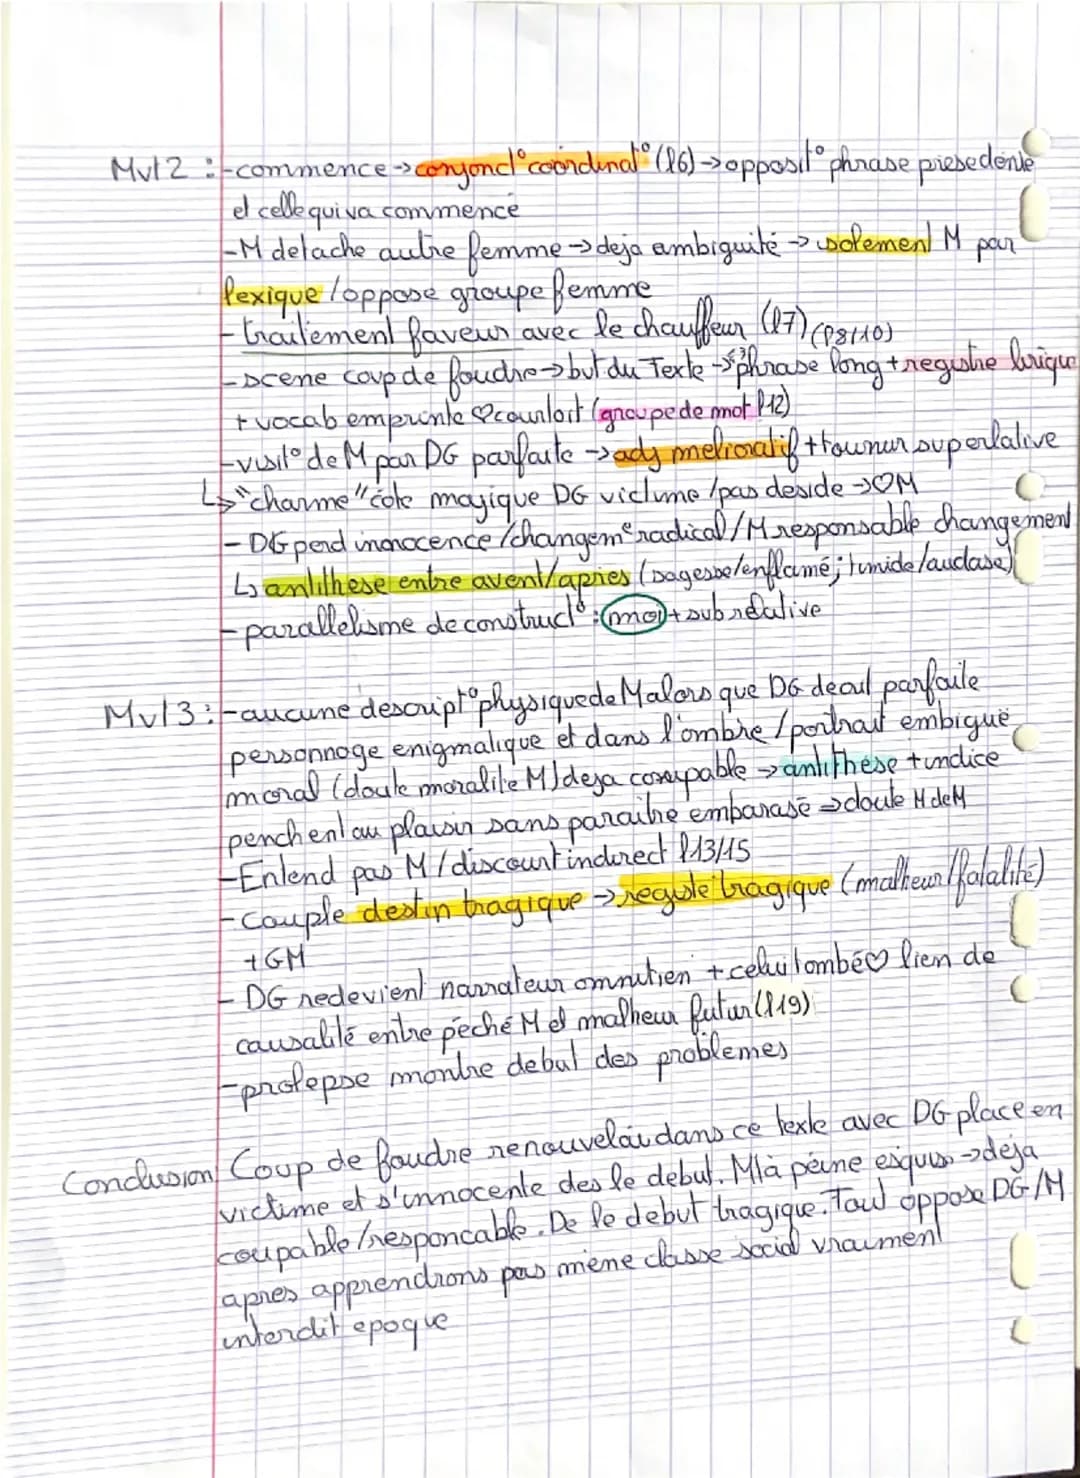 Mvt 2 : - commence → conjonct° coordinat° (l6) → opposit° phrase presedente
et celle qui va commence
- M detache autre femme → deja ambiguité → isolement M par
lexique / oppose groupe femme
- traitement faveur avec le chauffeur (l7) (P8/10)
- scene coup de foudre → but du Texte → phrase long + registre lirique
+ vocab emprinte ♡ courtoit (groupe de mot l12)
- visit° de M par DG parfaite → adj melioratif + tournur superlative
↳ "charme" cote magique DG victime / pas deside → ♡M
- DG perd innocence / changemᵉ radical / M responsable changement
↳ antithese entre avent/apries (sagesse/enflamé ; timide/audase)
- parallelisme de construct° : moi + sub relative
Mvt 3 : - aucune descript° physique de M alors que DG deaut parfaite
personnage enigmatique et dans l'ombre / portrait embiguë
moral (doute moralite M) deja coupable → antithese + indice
penchent au plaisir sans paraitre embarasé → doute M de M
- Entend pas M / discourt indirect l13/15
- Couple destin tragique → registe tragique (malheur/fatalité)
+ GM
- DG redevient narrateur omnitien + celui tombé ♡ lien de
causalité entre péché M et malheur futur (l19)
- prolepse montre debut des problemes
Conclusion Coup de foudre renouvelai dans ce texte avec DG place en
victime et s'innocente des le debut. M à peine esquis → deja
coupable/responcable. De le debut tragique. Tout oppose DG/M
apres apprendrons pas même classe social vraiment
interdit epoque